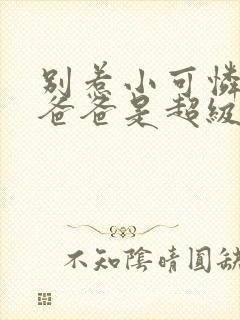 别惹小可憐
爸爸是超級
不知陰晴圓缺